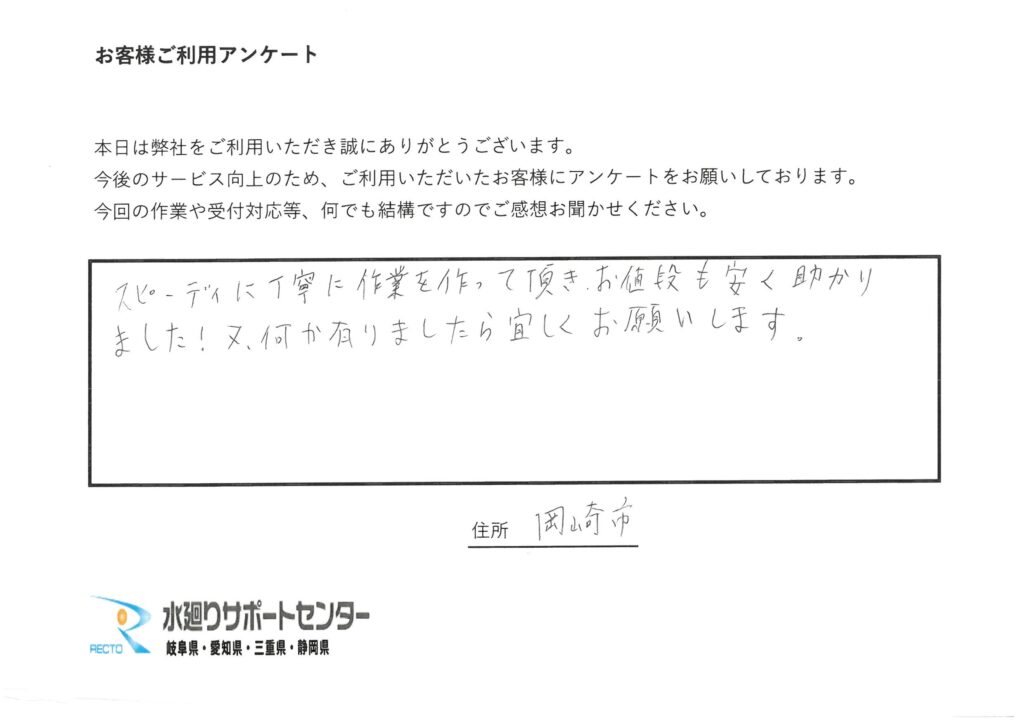 お客様ご利用アンケート
本日は弊社をご利用いただき誠にありがとうございます。
今後のサービス向上のため、ご利用いただいたお客様にアンケートをお願いしております。
今回の作業や受付対応等、何でも結構ですのでご感想お聞かせください。
スピーディに丁寧に作業を作って頂き、お値段も安く助かり
ました！又、何か有りましたら宜しくお願いします。
住所 岡崎市
水廻りサポートセンター
RECTO 岐阜県・愛知県・三重県・静岡県